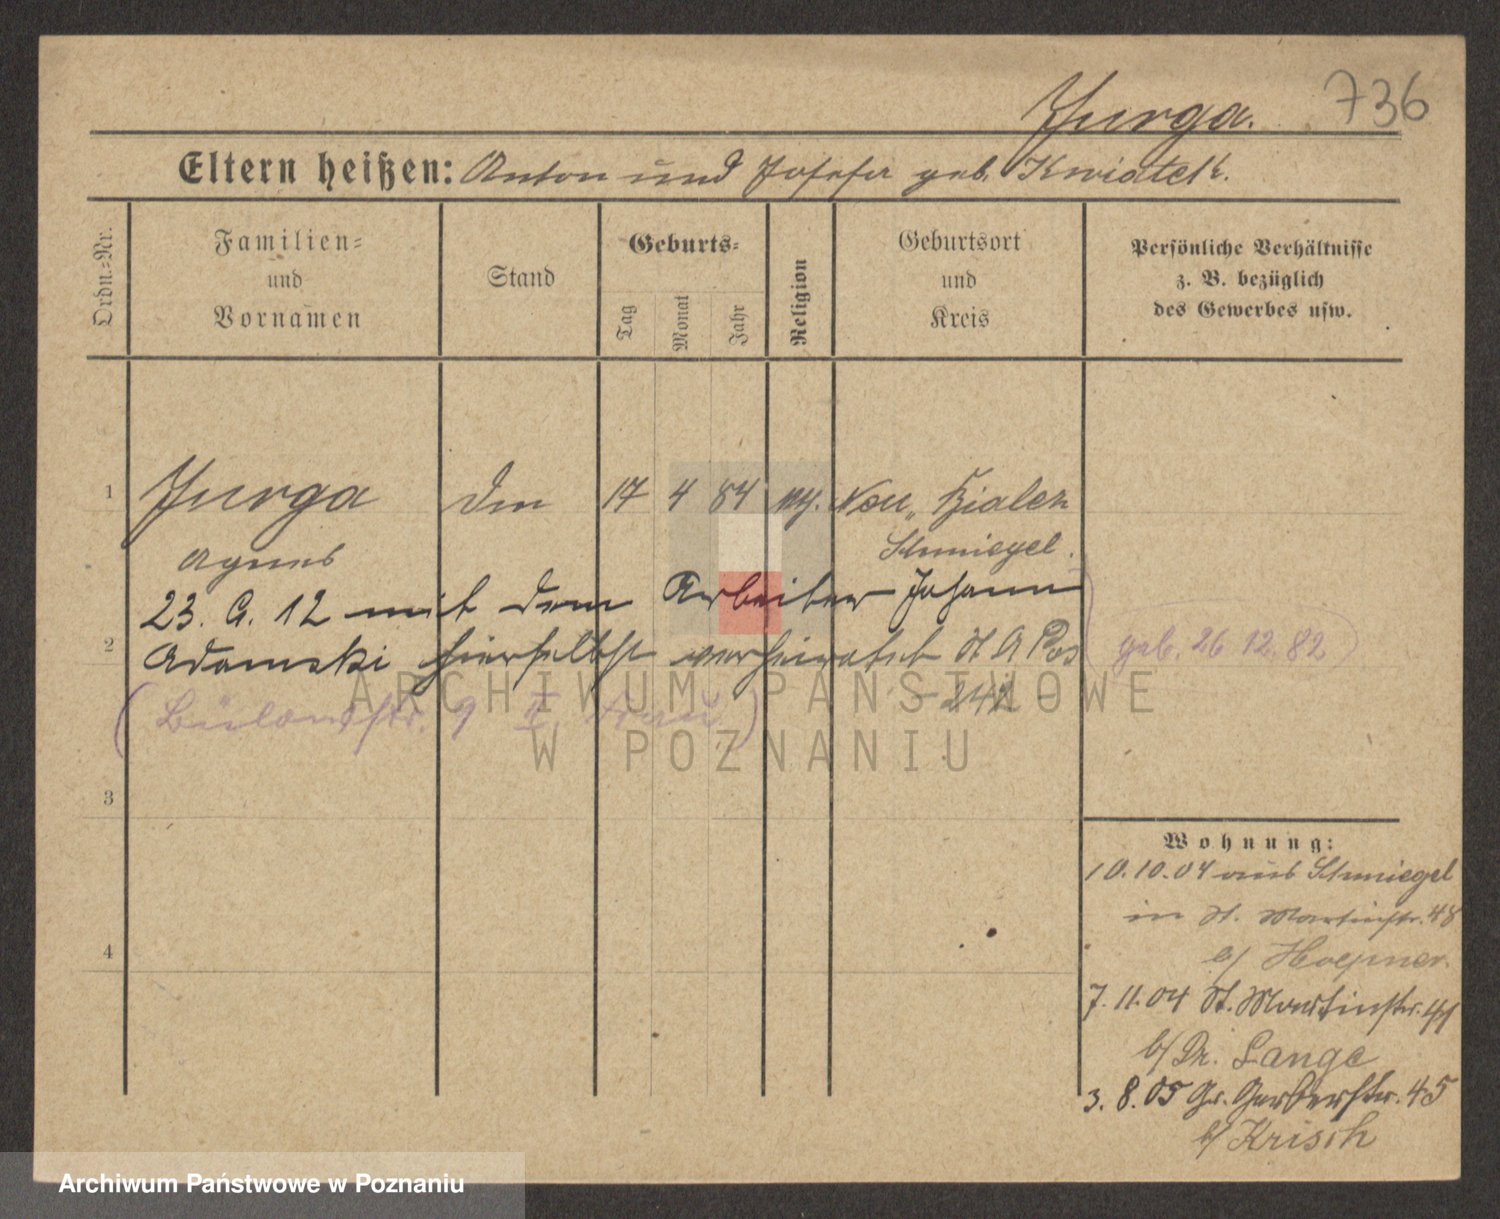 Jurga.
736
Eltern heißen: Anton und Josefa geb. Kwiatek.
Ordn.-Nr.
Familien-
und
Vornamen
Stand
Geburts-
Tag
Monat
Jahr
Religion
Geburtsort
und
Kreis
Persönliche Verhältnisse
z. B. bezüglich
des Gewerbes usw.
1
Jurga
17 4 84
Neu
Schmiegel.
Agnes
23. 9. 12 mit dem Arbeiter Johann
2
Adamski hierselbst verheiratet St A Pos
geb. 26 12. 82
242
(Bülowstr. 9 II)
ARCHIWUM PAŃSTWOWE
W POZNANIU
3
4
Wohnung:
10.10.04 aus Schmiegel
in St. Martinstr. 48
b/ Hoepner.
7. 11. 04 St. Martinstr. 41
b/ Dr. Lange
3. 8. 05 Gr. Gerberstr. 45
b/ Krisch
Archiwum Państwowe w Poznaniu